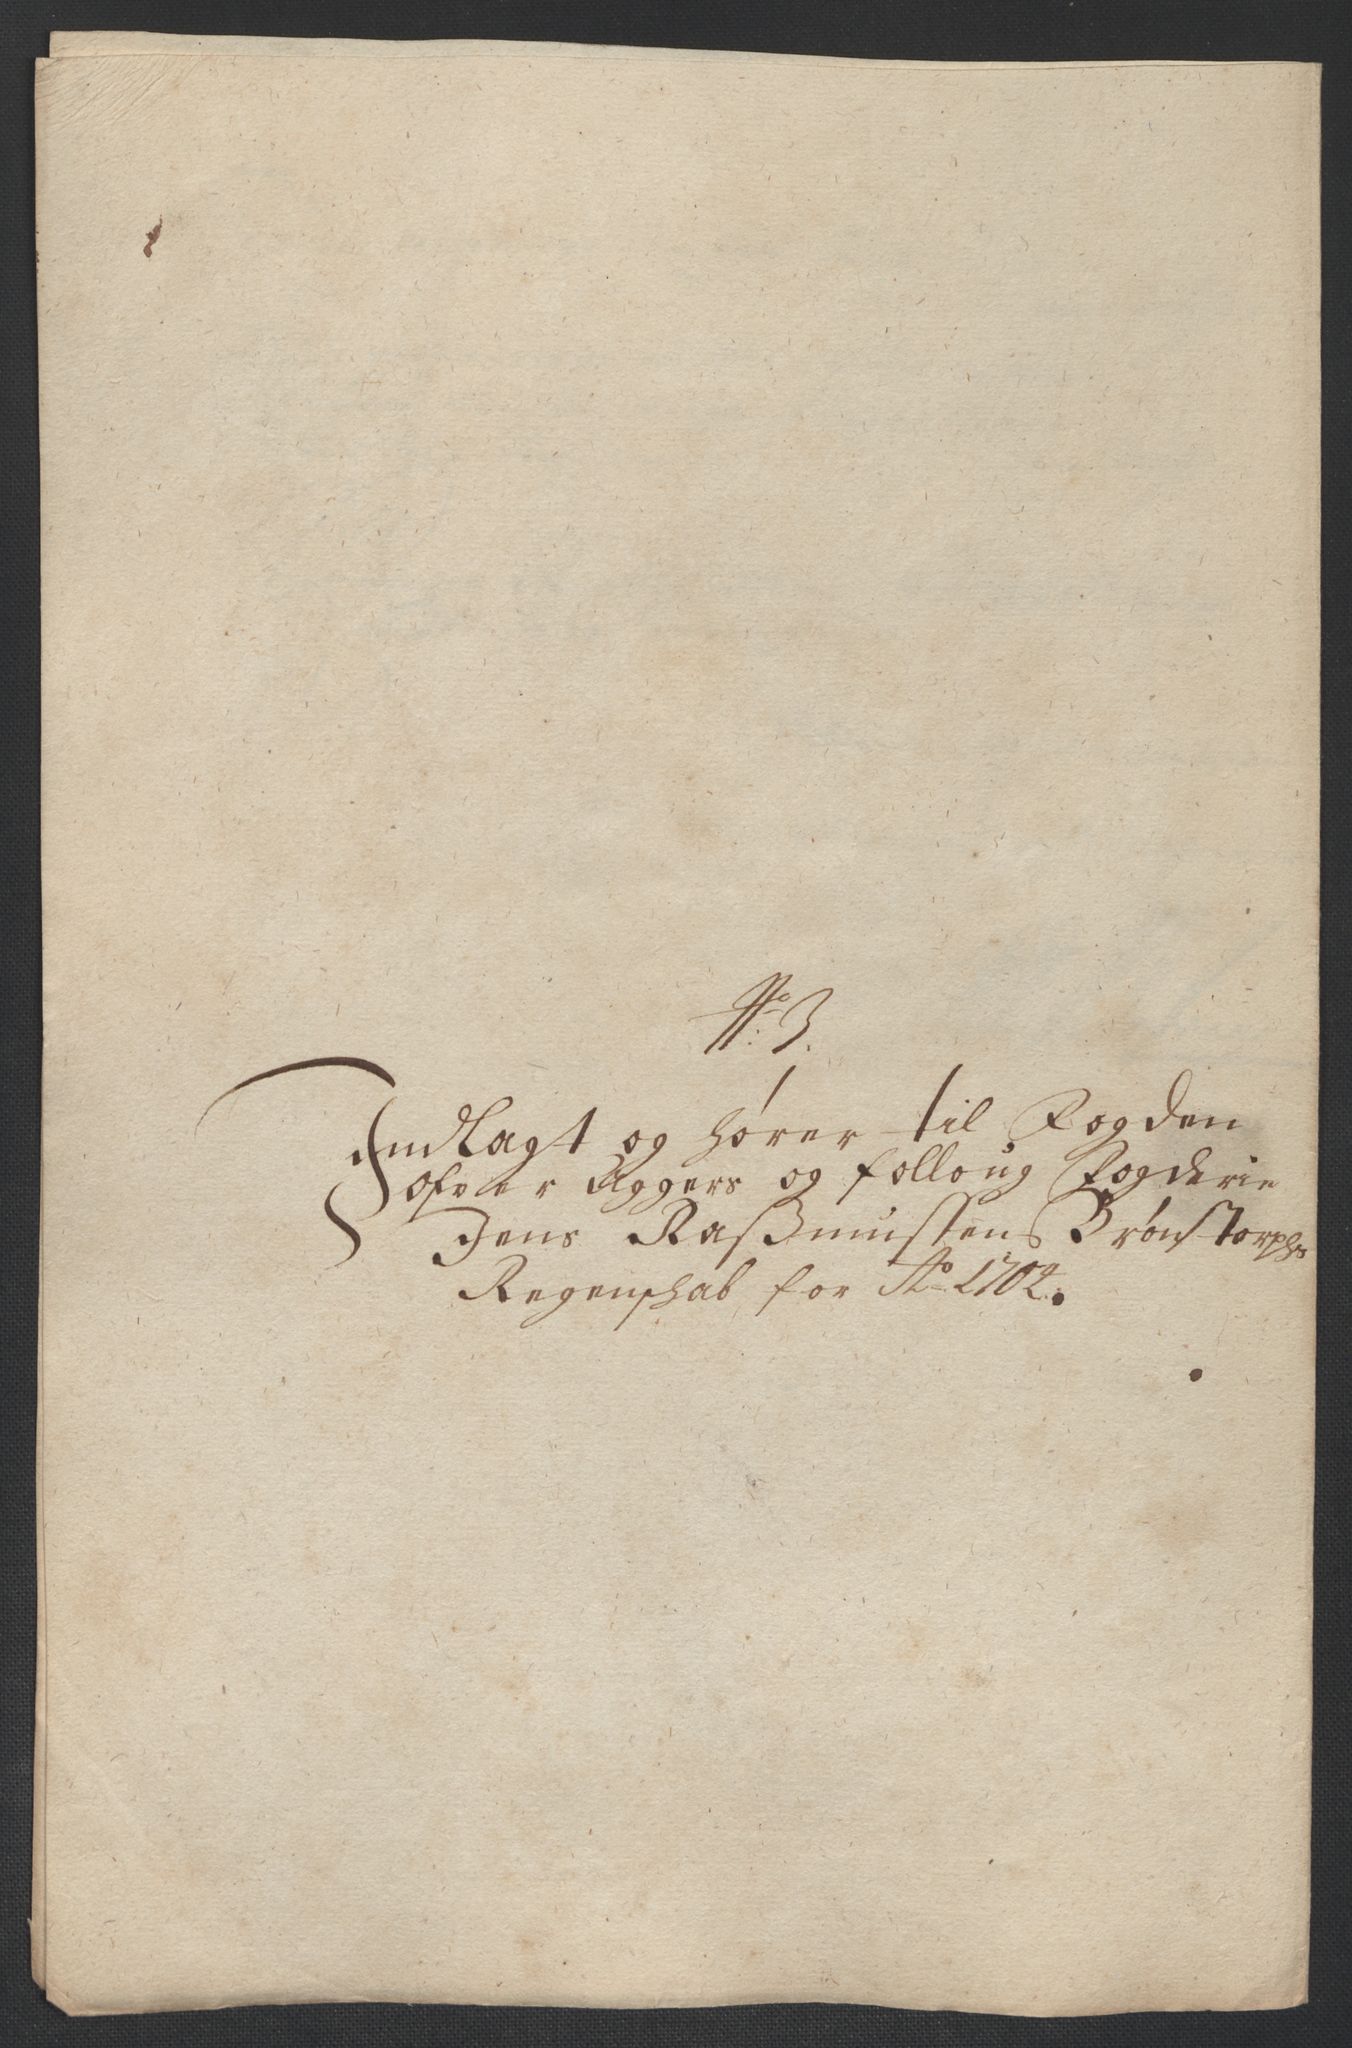 No: 3.
Indlagt og hører til Fogden
ofver Aggers og folloug Fogderie
Jens Raßmussens Brønstorphs
Regenschab for Ao 1704.